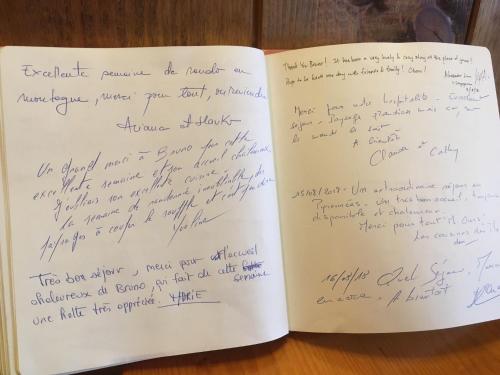 Excellente semaine de rando en
montagne, merci pour tout, on reviendra
Un grand merci à Bruno pour cette
excellente semaine et son accueil chaleureux,
n'oublions son excellente cuisine
la semaine de randonnée inoubliable, des
paysages à couper le souffle et
Très bon séjour, merci pour l'accueil
chaleureux de Bruno, qui fait de cette semaine
une halte très appréciée.
Thank You Bruno! It has been a very lovely & cosy stay at the place of yours!
Hope to be back one day with friends & family!
Merci pour votre hospitalité -
séjour -
le monde le sait
A bientôt
Claude et Cathy
15/08/2018 - Un extraordinaire séjour en
Pyrénées - Un très bon accueil, toujours
disponible et chaleureux.
Merci pour tout
les cousins
16/08/18 Quel Séjour, Merci
encore, A bientôt